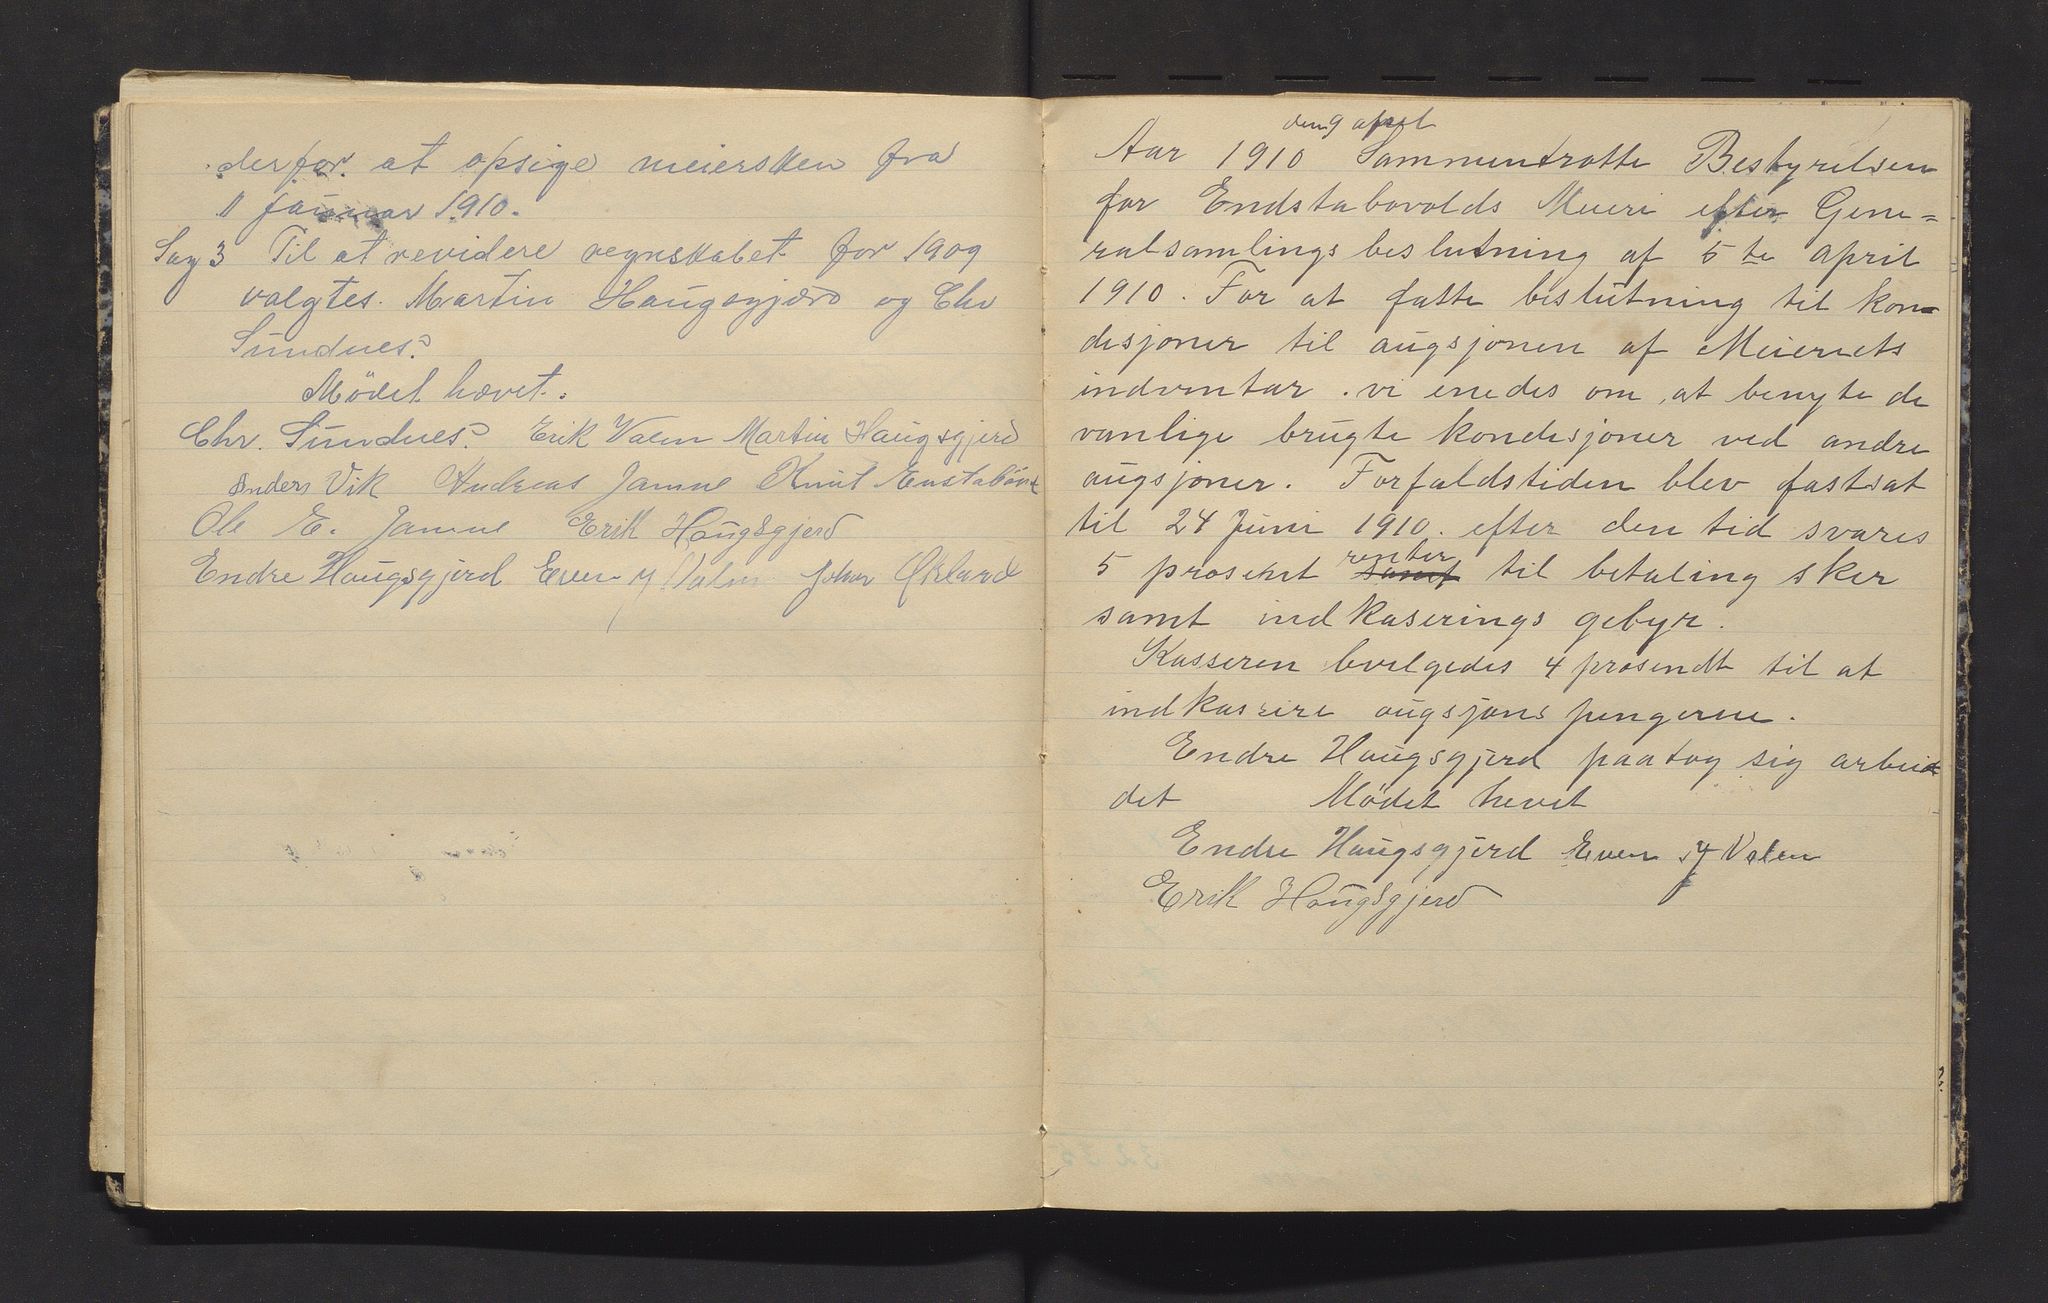 derfor at opsige meiersken fra
1 januar 1910.
Sag 3 Til at revidere regnskabet for 1909
valgtes. Martin Haugsgjerd og Chr
Sundnes.
Mödet hævet.
Chr. Sundnes. Erik Valen Martin Haugsgjerd
Anders Vik Andreas Jamne Knut Enstabövol
Ole E. Jamne Erik Haugsgjerd
Endre Haugsgjerd Even J Valen Johan Økland
den 9 april
Aar 1910 Sammentratte Bestyrelsen
for Endstabovolds Meieri efter Gene=
ralsamlings beslutning af 5te april
1910. For at fatte beslutning til kon-
desjoner til augsjonen af Meieriets
indventar. vi enedes om at benyte de
vanlige brugte kondisjoner ved andre
augsjoner. Forfaldstiden blev fastsat
til 24 Juni 1910. efter den tid svares
5 prosent renter samt til betaling sker
samt indkaserings gebyr.
Kasseren bevilgedes 4 prosendt til at
indkassere augsjons pengerne.
Endre Haugsgjerd paatog sig arbeid
det Mödet hevet
Endre Haugsgjerd Even J Valen
Erik Haugsgjerd